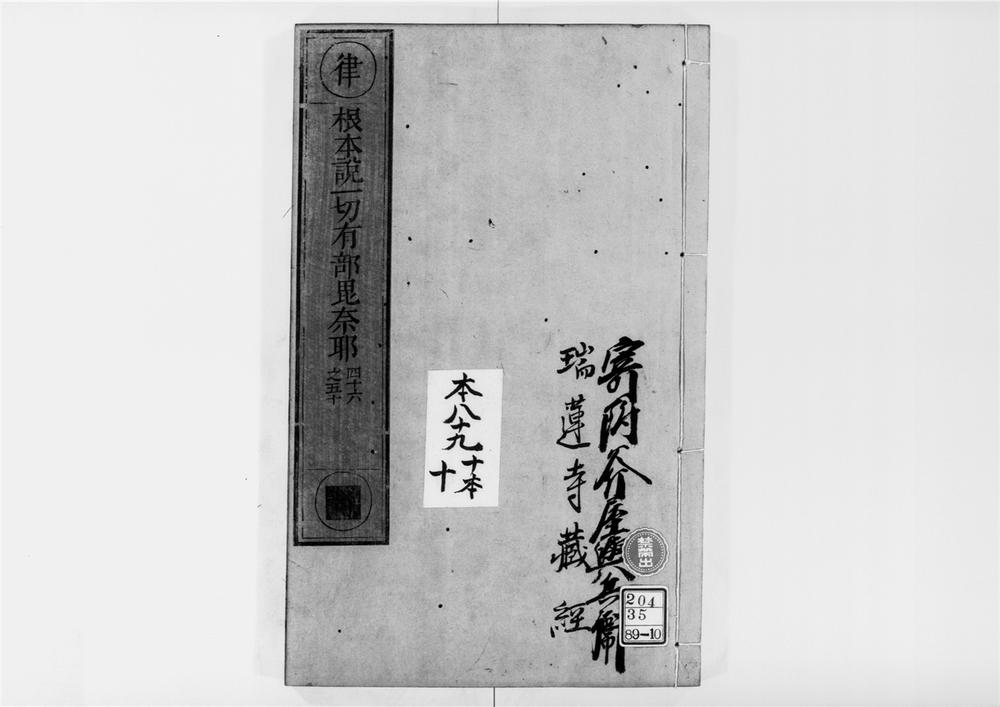 律
根本說一切有部毘奈耶
四十六
之五十
寄附介屋與兵衛
瑞蓮寺藏經
本八十九
十本
十
禁帶出
204
35
89-10